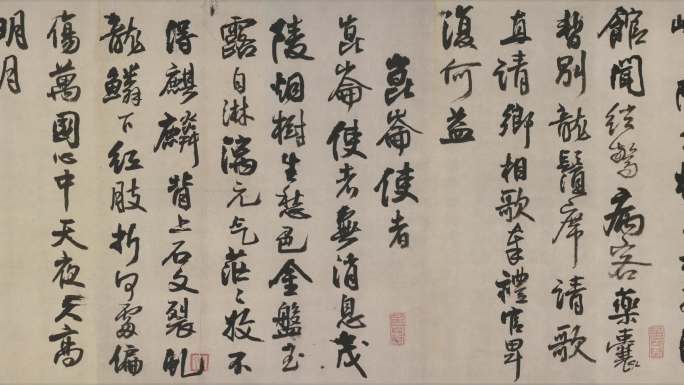 館聞絃驚病客藥囊
暫別龍鬚席請歌
直請卿相歌奉禮官卑
復何益
崑崙使者
崑崙使者無消息茂
陵烟樹生愁色金盤玉
露自淋漓元气茫々收不
得麒麟背上石文裂虬
龍鱗下紅肢折何處偏
傷萬國心中天夜久高
明月